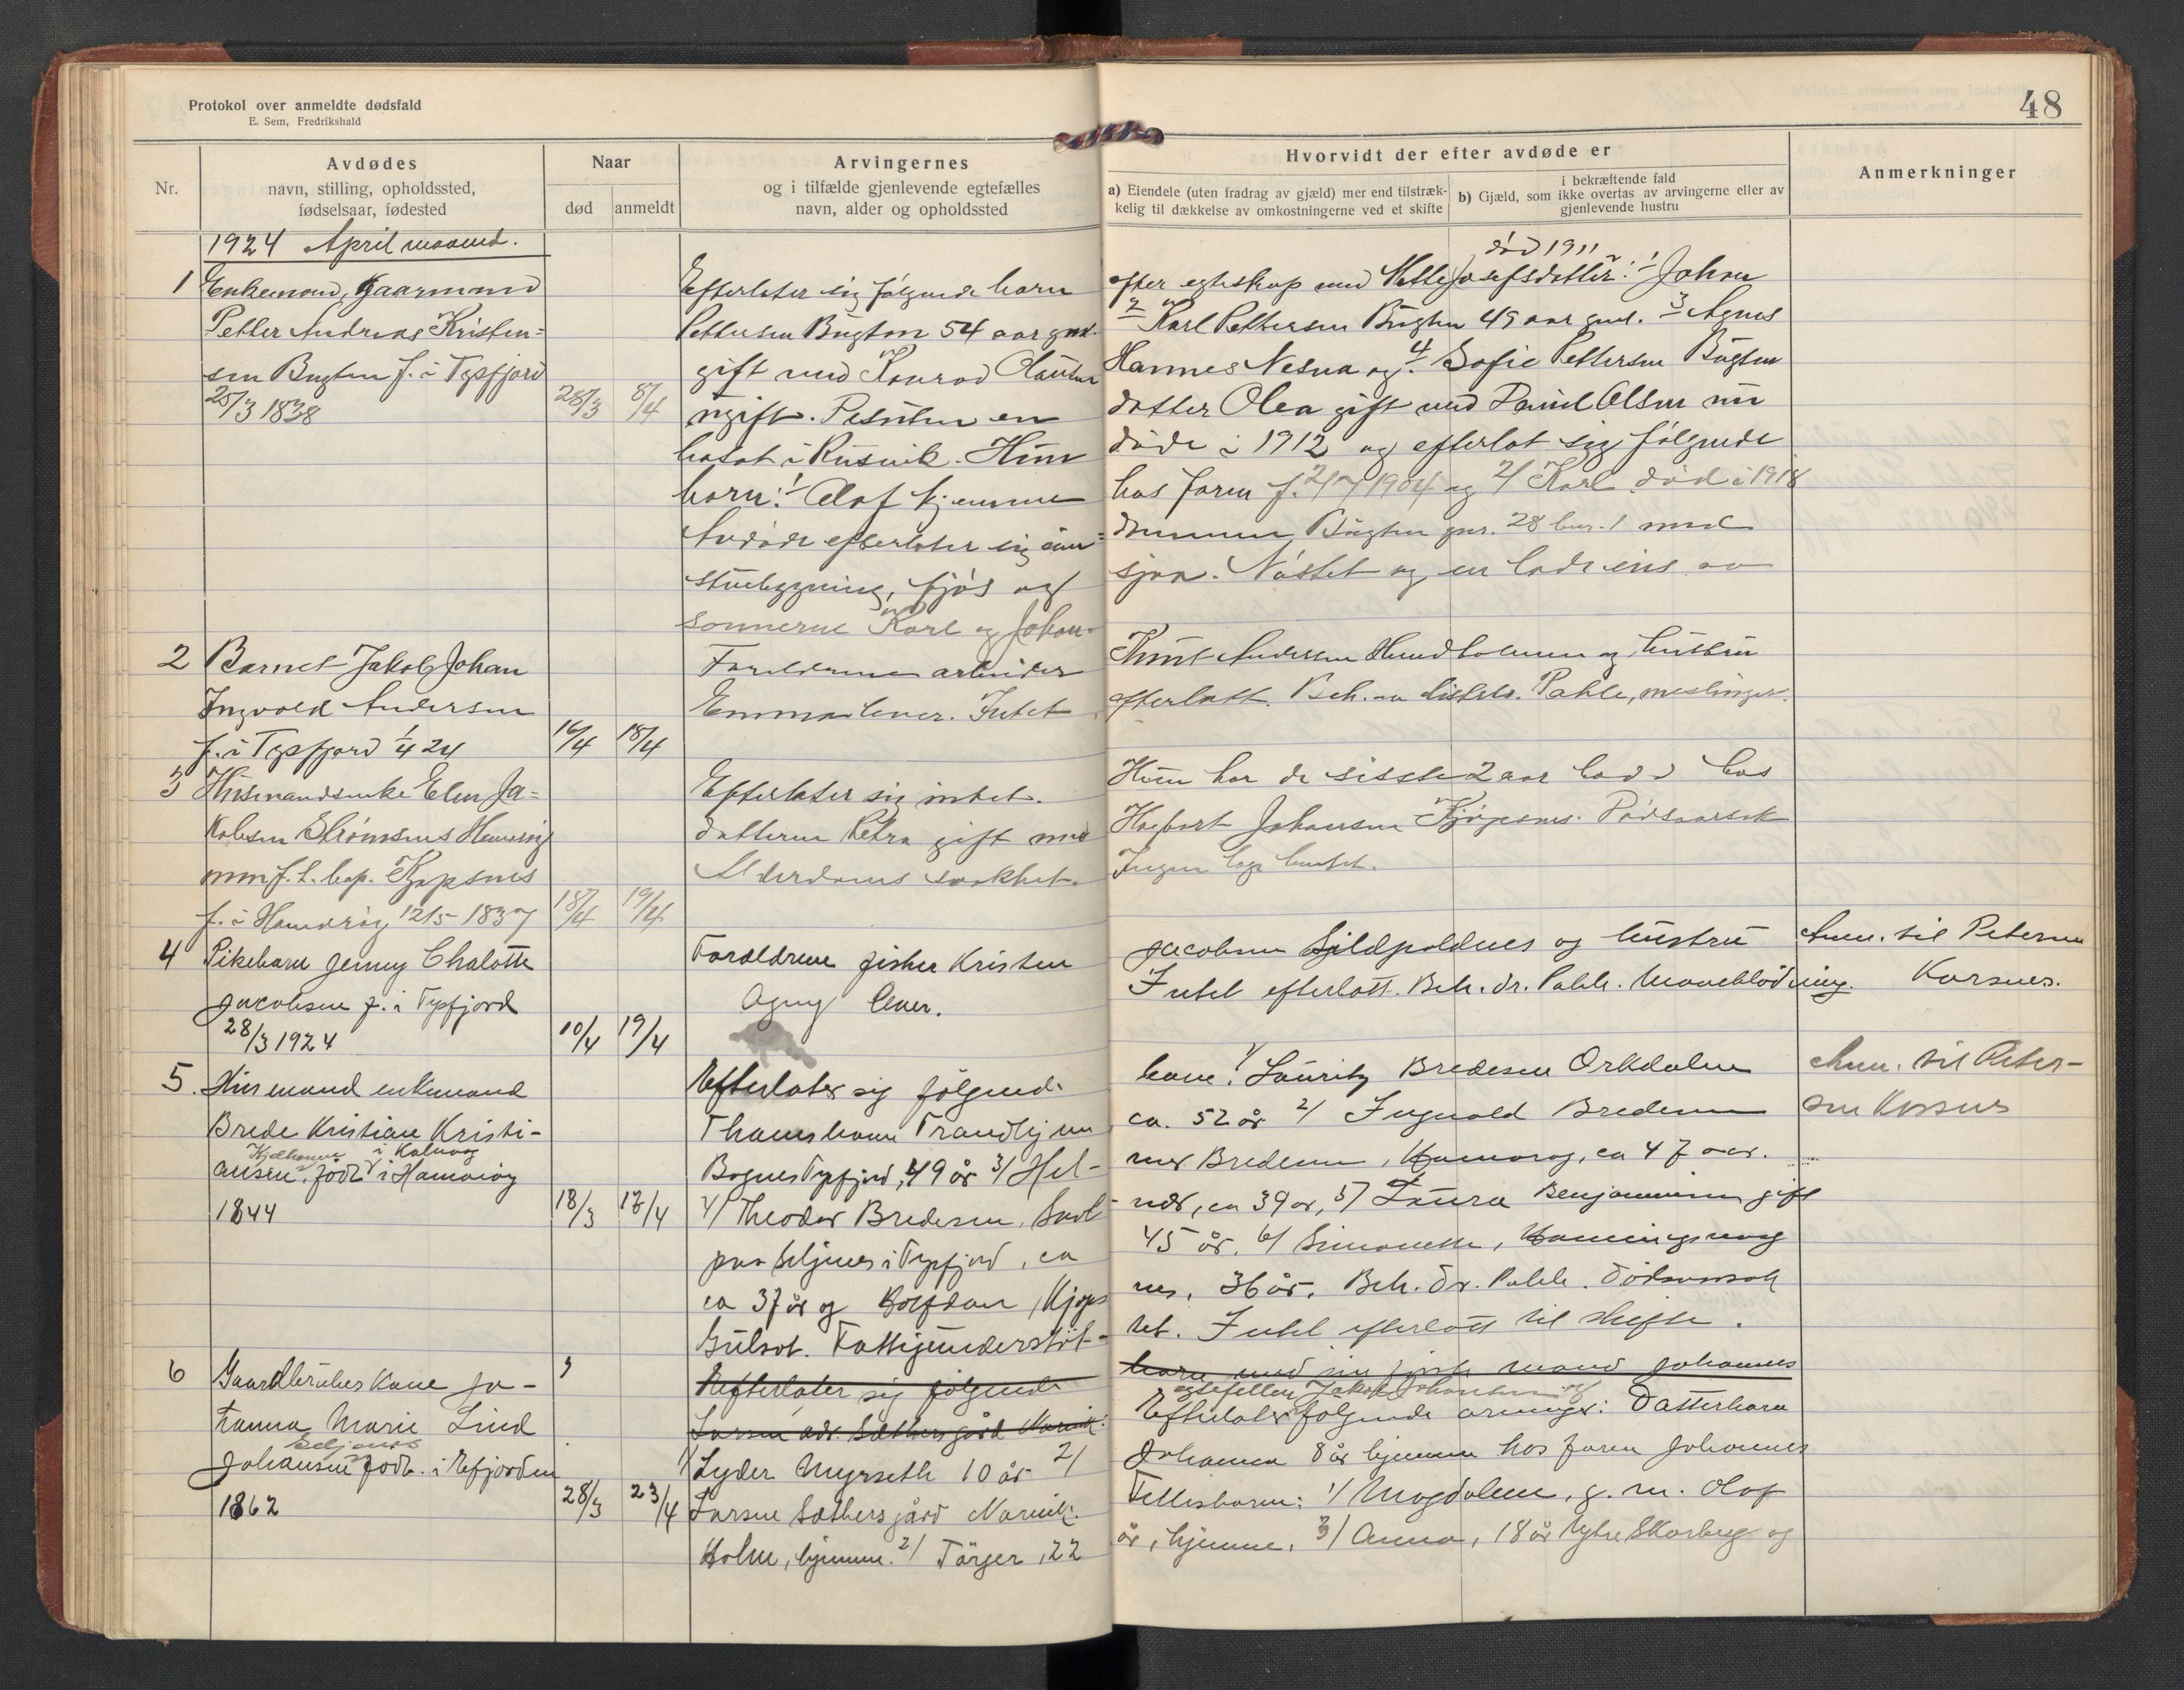 Protokol over anmeldte dødsfald
E. Sem, Fredrikshald
48
Nr.
Avdødes
navn, stilling, opholdssted,
fødselsaar, fødested
Naar
død
anmeldt
Arvingernes
og i tilfælde gjenlevende egtefælles
navn, alder og opholdssted
Hvorvidt der efter avdøde er
a) Eiendele (uten fradrag av gjæld) mer end tilstræk-
kelig til dækkelse av omkostningerne ved et skifte
i bekræftende fald
b) Gjæld, som ikke overtas av arvingerne eller av
gjenlevende hustru
Anmerkninger
1924 April maaned.
1 Enkemand, Gaarmand
Petter Andreas Kristen=
sen Bugten f. i Tysfjord
25/3 1838 28/3 8/4
Efterlater sig følgende barn efter egteskap med Mette Josefsdatter: 1 Johan
død 1911
Pettersen Bugten 54 aar gml. 2 Karl Pettersen Bugten 49 aar gml. 3 Agnes
gift med Konrad Hannes Nesna og 4 Sofie Pettersen Bugten
ugift. datter Olea gift med Olsen
bosat i Rusvik. Hun døde i 1912 og efterlot sig følgende
barn: 1 Olaf hjemme hos faren f. 2/7 1904 og 2/ Karl død i 1918
Avdøde efterlater sig Bugten gnr. 28 bnr. 1 med
stuebygning, fjøs og sjaa. Nøstet og en lade eies av
sønnerne Karl og Johan.
2 Barnet Jakob Johan
Ingvald Andersen
f. i Tysfjord 1/4 24 16/4 18/4
Forældrene arbeider Knut Andersen Hundholmen og hustru
Emma lever. Intet efterlatt. Beh. av distrl. Pahle, meslinger.
3 Husmandsenke Elen Ja=
kobsen Strømsnes Hamarøy
Kjøpsnes
f. i Hamarøy 12/5 1837 18/4 19/4
Efterlater sig intet. Hun har de sisste 2 aar bodd hos
datteren Petra gift med Hagbart Johansen Kjøpsnes. Dødsaarsak
Alderdoms svakhet. Ingen læge hentet.
4 Pikebarn Jenny Chalotte
Jacobsen f. i Tysfjord
28/3 1924 10/4 19/4
Forældrene fisker Kristen Jacobsen Sildpoldnes og hustru
Agny lever. Intet efterlatt. Beh. dr. Pahle. Maveblødning.
Anm. til Petersen
Korsnes.
5. Husmand enkemand
Brede Kristian Kristi-
ansen, født i Hamarøy
i Kalvaag
1844 18/3 12/4
Efterlater sig følgende barn: 1/ Lauritz Bredesen Orkdalen
Thamshavn Trondhjem ca. 52 år 2/ Ingvald Bredesen
Bognes Tysfjord, 49 år 3/ Hel- mer Bredesen, Hamarøy, ca 47 aar.
4/ Theodor Bredesen, ca 39 år, 5/ Laura Benjaminsen gift
paa i Tysfjord, ca 45 år, 6/ Simonette,
ca 37 år og Halfdan, Kjøps nes, 36 år. Beh. dr. Pahle. Dødsaarsak
Gulsot. Fattigunderstøt- tet. Intet efterlatt til skifte.
Anm. til Peter-
sen Korsnes
6 Gaardbruker Kone Jo-
hanna Marie Lind
Seljenes
Johansen født i Efjorden
1862 28/3 23/4
Efterlater sig følgende barn med sin første mand Johannes
Larsen adr. Sæthersgård Narvik:
egtefellen Jakob Johansen og
Efterlater følgende arvinger: Datterbarn
1/ Lyder Myrseth 10 år 2/ Johanna 8 år hjemme hos faren Johannes
Larsen Sæthersgård Narvik. Fellesbarn: 1/ Magdalene, g. m. Olaf
Holm, hjemme. 2/ Torger, 22 år, hjemme, 3/ Anna, 18 år og